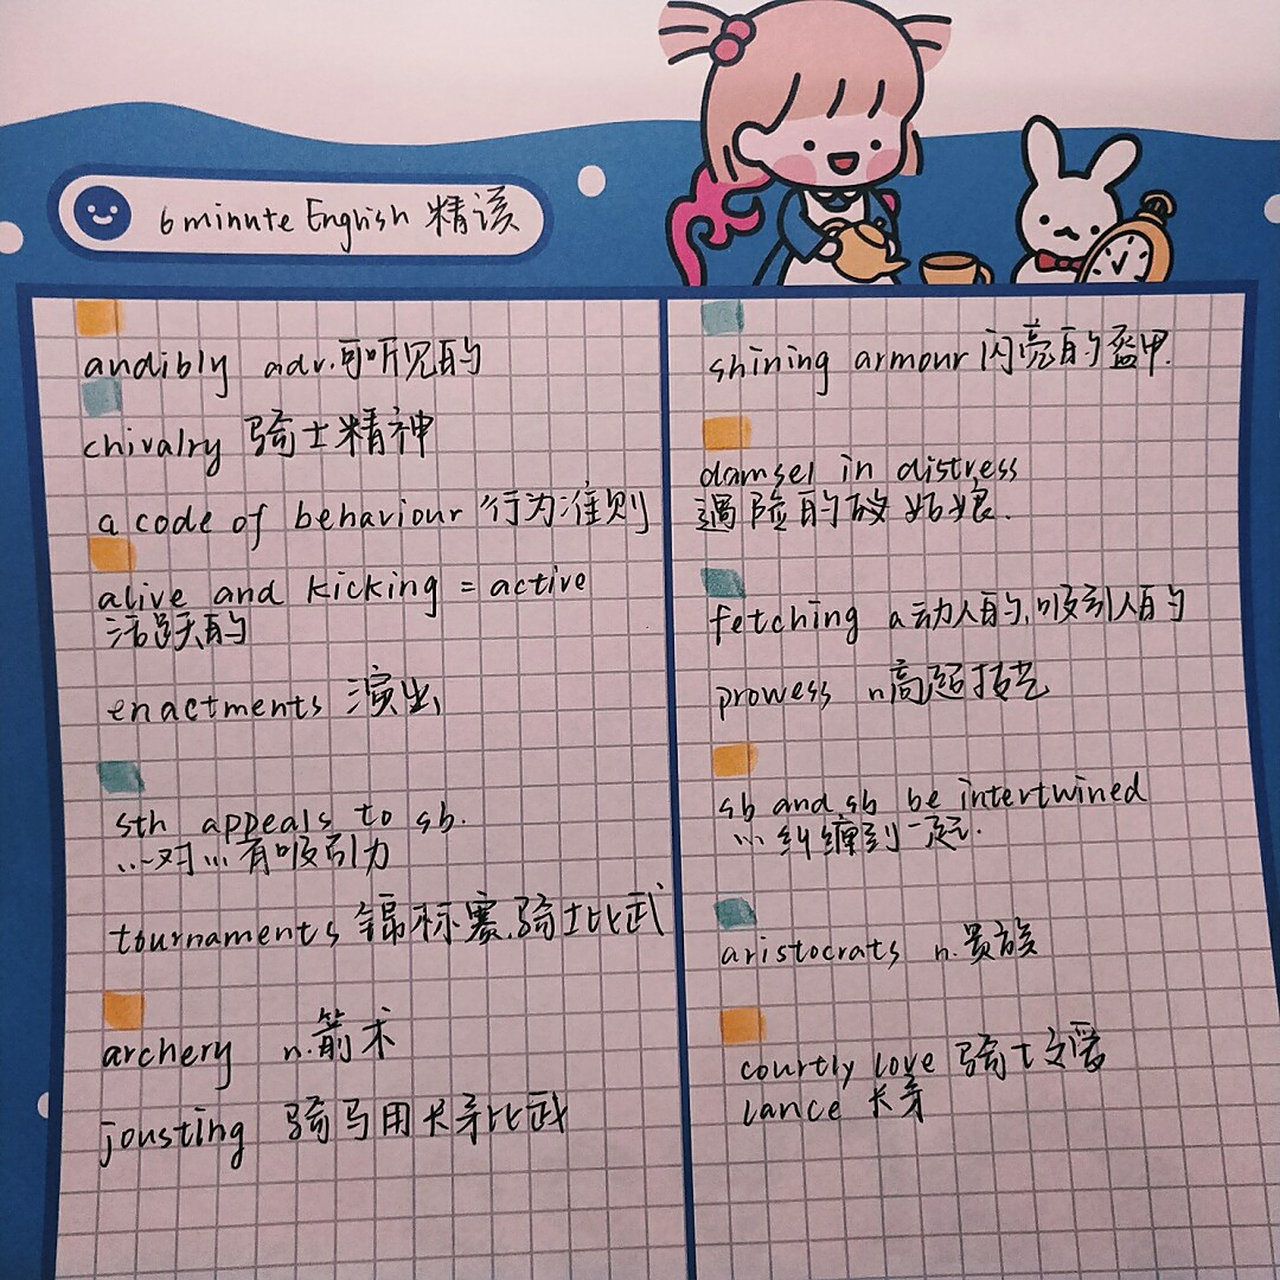 6 minute English 精读
audibly adv.可听见的
chivalry 骑士精神
a code of behaviour 行为准则
alive and kicking = active
活跃的
enactments 演出
sth appeals to sb.
…对…有吸引力
tournaments 锦标赛.骑士比武
archery n.箭术
jousting 骑马用长矛比武
shining armour 闪亮的盔甲.
damsel in distress
遇险的 姑娘.
fetching a动人的,吸引人的
prowess n高超技艺
sb and sb be intertwined
…纠缠到一起.
aristocrats n.贵族
courtly love 骑士文爱
lance 长矛